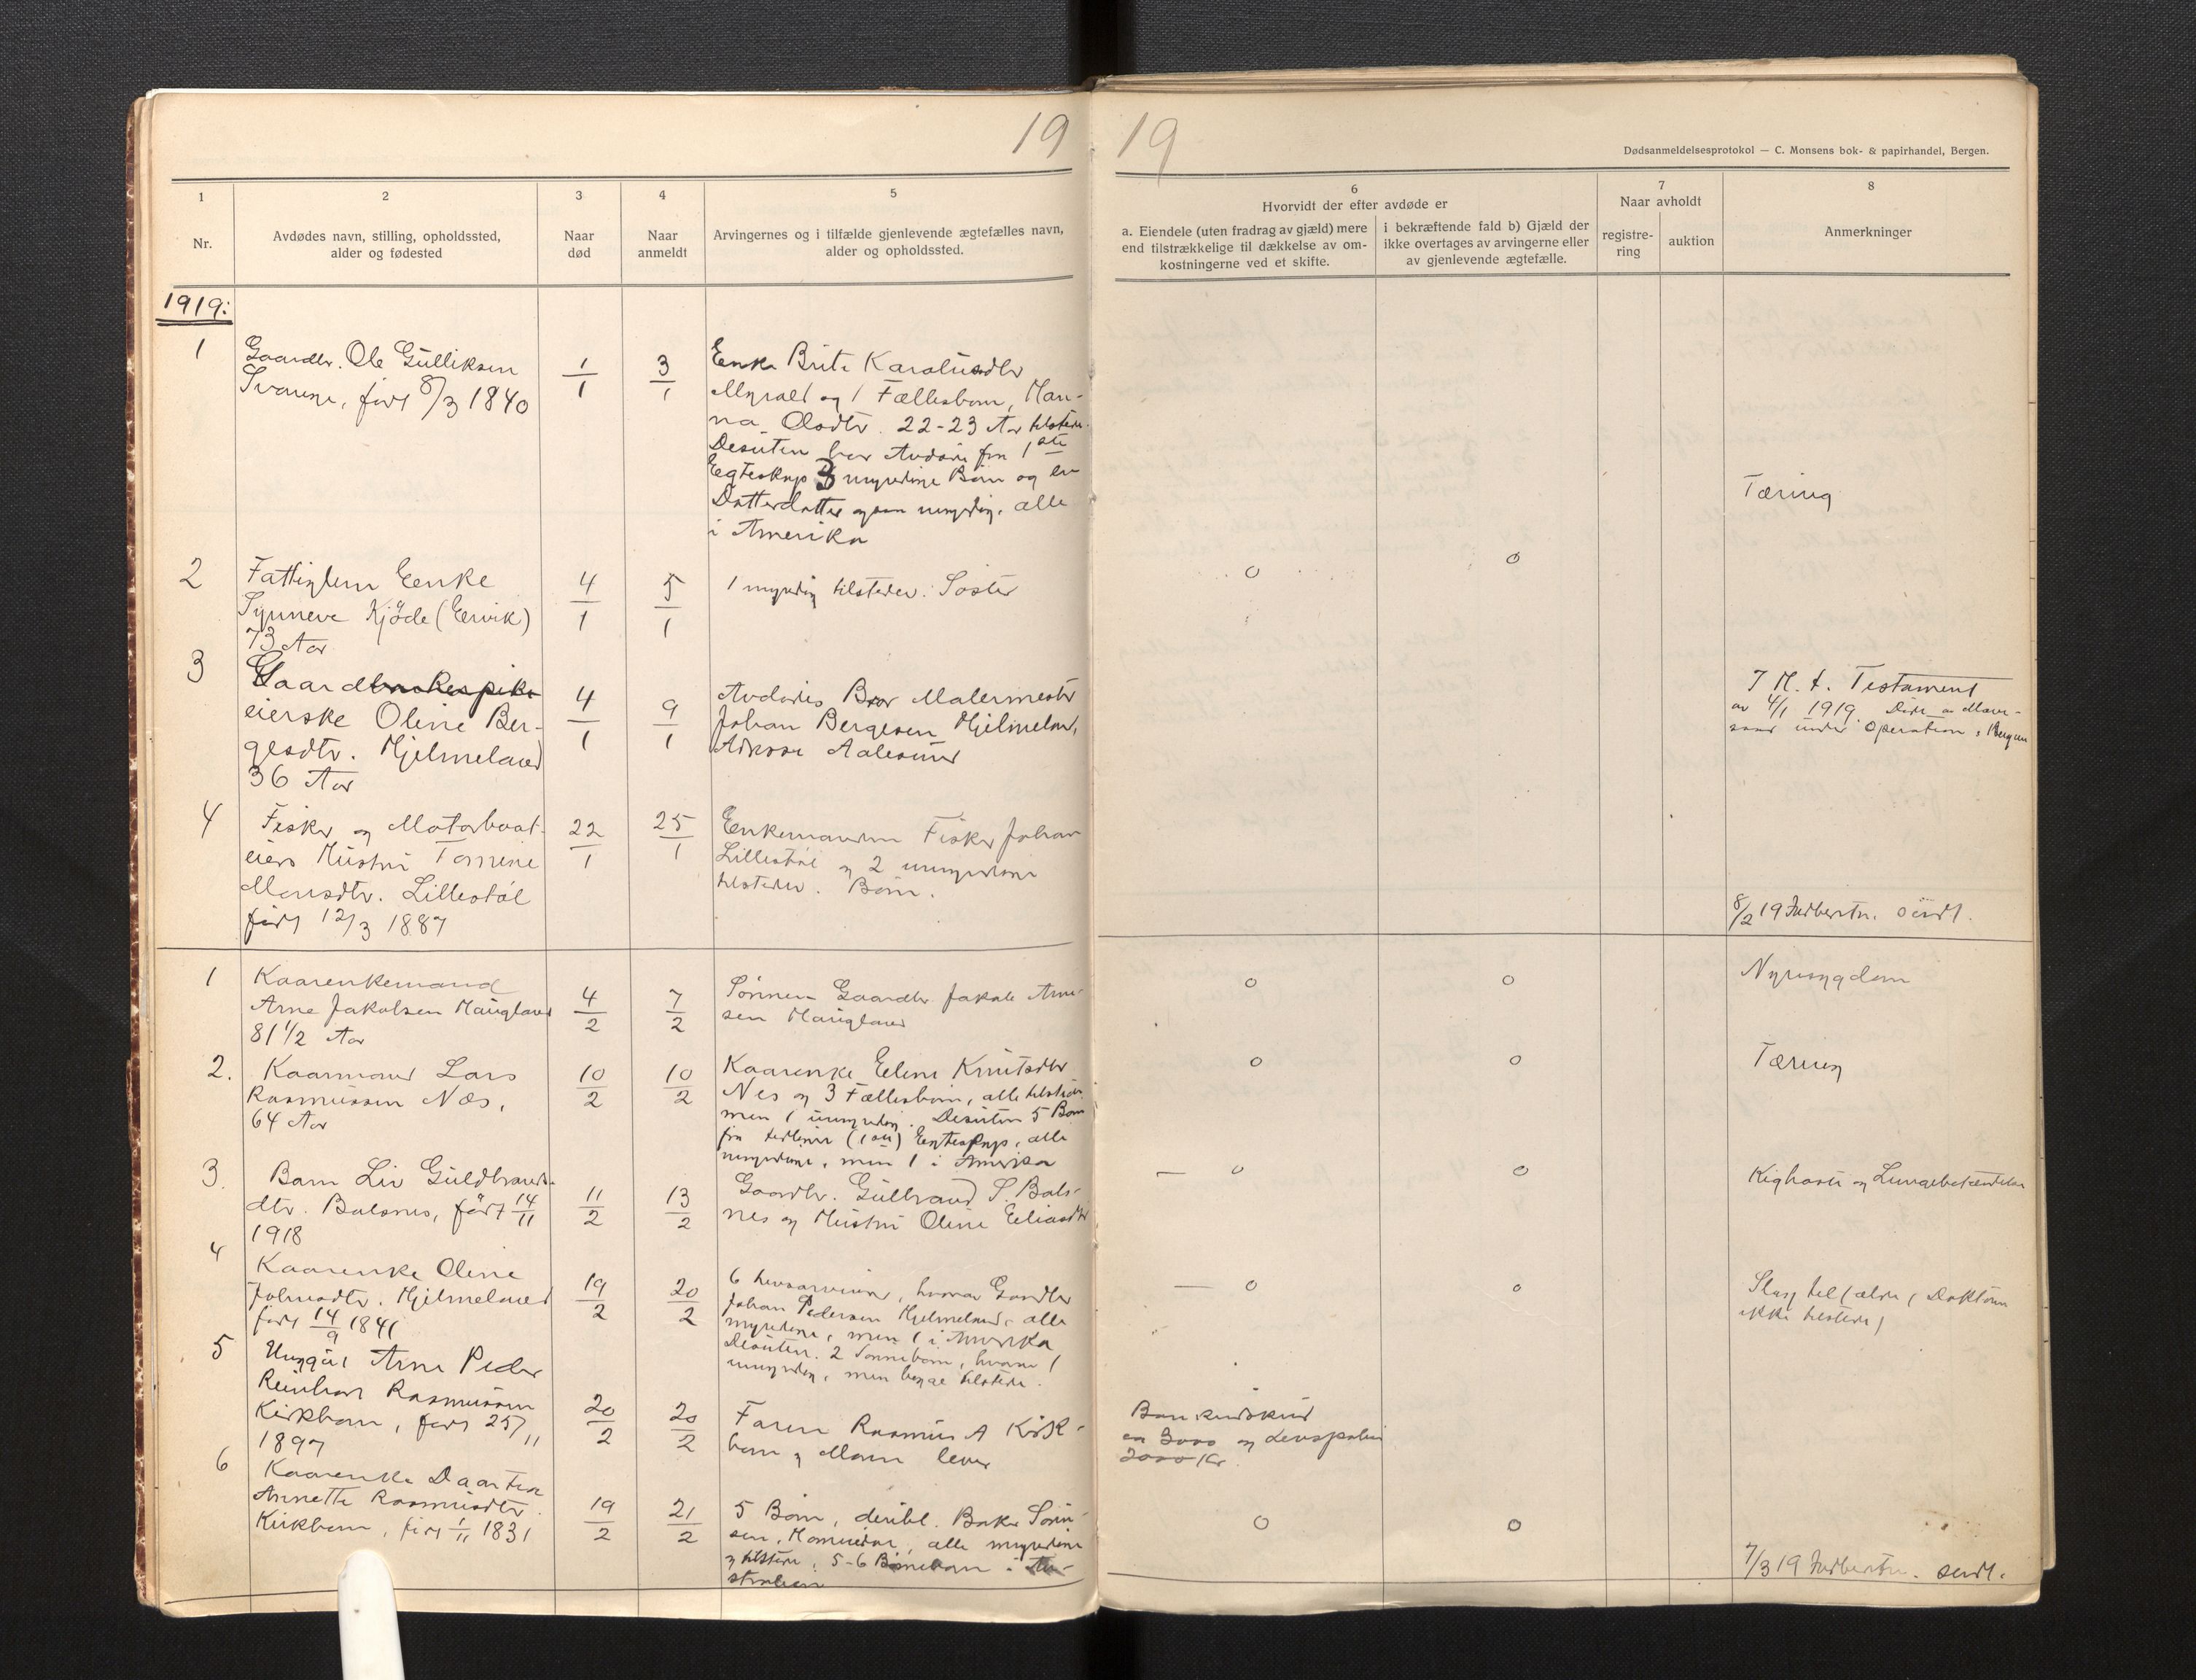 19
19
Dødsanmeldelsesprotokol — C. Monsens bok- & papirhandel, Bergen.
1
Nr.
2
Avdødes navn, stilling, opholdssted,
alder og fødested
3
Naar
død
4
Naar
anmeldt
5
Arvingernes og i tilfælde gjenlevende ægtefælles navn,
alder og opholdssted.
6
Hvorvidt der efter avdøde er
a. Eiendele (uten fradrag av gjæld) mere
end tilstrækkelige til dækkelse av om-
kostningerne ved et skifte.
i bekræftende fald b) Gjæld der
ikke overtages av arvingerne eller
av gjenlevende ægtefælle.
7
Naar avholdt
registre-
ring
auktion
8
Anmerkninger
1919:
1
Gaardbr. Ole Gulliksen
født 8/3 1840
1/1
3/1
Enke Brite
og 1 Fællesbarn, Han-
na Olsdtr. 22-23 Aar tilstede.
Desuten har Avdøde fra 1ste
Egteskap 3 myndige Børn og en
Datterdatter ogsaa alle
i Amerika
Tæring
2
Fattiglem Enke
Synneve Kjöde (Eervik)
73 Aar
4/1
5/1
1 myndig tilstedev. Søster
0
0
3
Gaard
eierske Oline Ber-
gesdtr. Hjelmeland
36 Aar
4/1
9/1
Avdødes Bror Malermester
Johan Bergesen Hjelmeland,
Adresse Aalesund
Testament
av 4/1 1919.
under Operation i Bergen
4
Fisker og Motorbaat-
eiers Hustru Tomine
Monsdtr. Lillestøl
født 12/3 1887
22/1
25/1
Enkemanden Fisker Johan
Lillestøl og 2 umyndige
tilstedev. Børn.
8/2 19 Indberetn. sendt.
1
Kaarenkemand
Arne Jakobsen Haugland
81 1/2 Aar
4/2
7/2
Sønnen Gaardbr. Jakob Arne-
sen Haugland
0
0
Nyresygdom
2.
Kaarmand Lars
Rasmussen Næs,
64 Aar
10/2
10/2
Kaarenke Eline Knutsdtr
Nes og 3 Fællesbørn, alle tilstede
men 1 umyndig. Desuten 5 Børn
fra tidligere (1ste) Egteskap, alle
myndige, men 1 i Amerika
0
0
Tæring
3.
Barn Liv Guldbrands-
dtr. Balsnes, født 14/11
1918
11/2
13/2
Gaardbr. Gulbrand S. Bals-
nes og Hustru Oline Eliasdtr
— 0
0
Kighoste og Lungebetændelse
4
Kaarenke Oline
Johnsdtr. Hjelmeland
født 14/9 1841
19/2
20/2
6 Livsarvinger, hvorav Gaardbr
Johan Pedersen Hjelmeland, alle
myndige, men 1 i Amerika
Desuten 2 Sønnebørn, hvorav 1
umyndig, men begge tilstede.
— 0
0
Slag (Doktoren
ikke tilstede)
5
Ungkar Arne Peder
Reinhart Rasmussen
Kirkhorn, født 25/11
1897
20/2
20/2
Faren Rasmus A Kirk-
horn og Moren lever
Bankindskud
ca 3000 og Livspolice
2000 Kr.
6
Kaarenke Daartea
Annette Rasmusdtr.
Kirkhorn, født 1/11 1831
19/2
21/2
5 Børn, deribl. Baker
alle myndige
og tilstede, 5-6 Børnebørn i Au-
stralien
0
0
7/3 19 Indberetn. sendt.